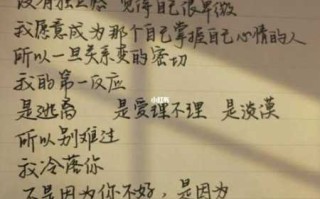 没有独立感 觉得自己很卑微
我愿意成为那个自己掌握自己心情的人
所以一旦关系变的密切
我的第一反应
是逃离 是爱理不理 是淡漠
所以别难过
我冷落你
不是因为你不好，是因为
小红书